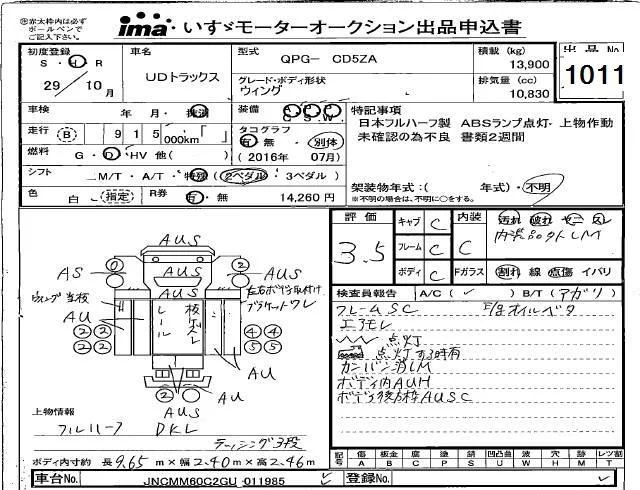 ※赤太枠内は必ずボールペンでご記入下さい。
ima・いすゞモーターオークション出品申込書
初度登録 S・H・R 29/10月
車名 UDトラックス
型式 QPG- CD5ZA
グレード・ボディ形状 ウィング
積載 (kg) 13,900
排気量 (cc) 10,830
出品No 1011
車検 年 月・抹消
走行 (B) 915 000km「 」
燃料 G・D・HV 他( )
シフト M/T・A/T・特殊 (2ペダル・3ペダル)
色 白 指定
R券 有・無 14,260円
装備 A S W
タコグラフ 有・無 別体
(2016年 07月)
特記事項
日本フルハーフ製 ABSランプ点灯・上物作動
未確認の為不良 書類2週間
架装物年式:( 年式)・不明
※不明の場合は、不明に○をする。
評価 3.5
キャブ C
フレーム C
ボディ C
内装 C
Fガラス
汚れ 破れ ヤニ スレ
内装品タトLM
割れ 線 点傷 イバリ
検査員報告 A/C(✓) B/T(アガリ)
フレームSC
エアモレ
点灯
点灯する時有
カンバン消しLM
ボディ内AUH
ボディ後方枠AUSC
AUS
AUS
AS
AU
AU
AU
AUS
0
2
2 2
2 2
4 4
5 5
2
レール
上物情報
フルハーフ DKL
ラッシング3段
ボディ内寸約 長9.65m×幅2.40m×高2.46m
記号 傷A 板金B 腐C 塗P サビS 凹凸曲U 波W 穴H 跡M レツ割T
車台No. JNCMM60C2GU-011985 登録No.